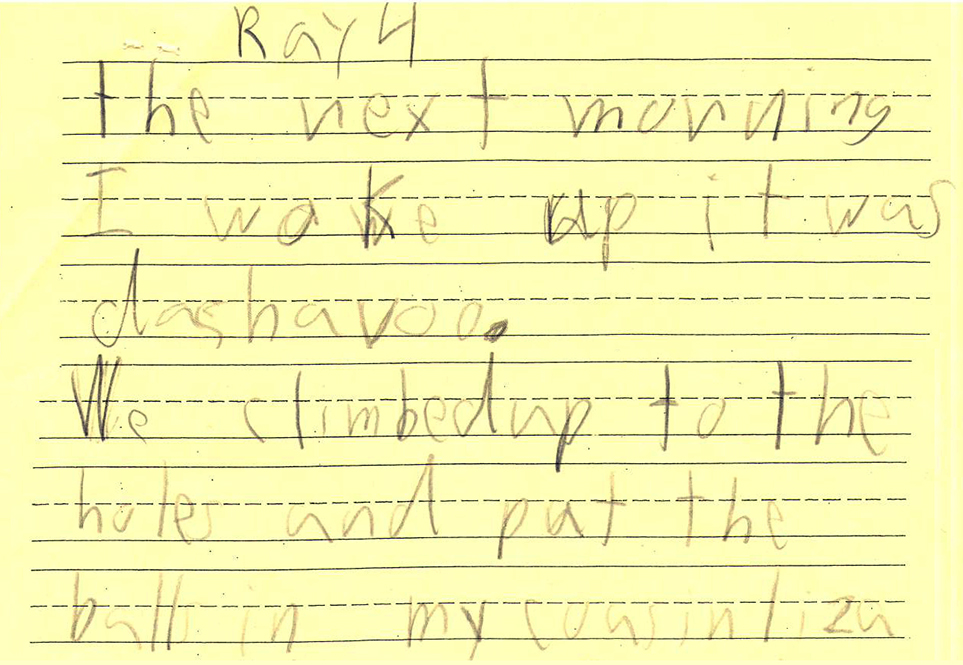 Ray H
the next morning
I woke up it was
dashavoo.
We climbed up to the
holes and put the
balls in my cousin liza